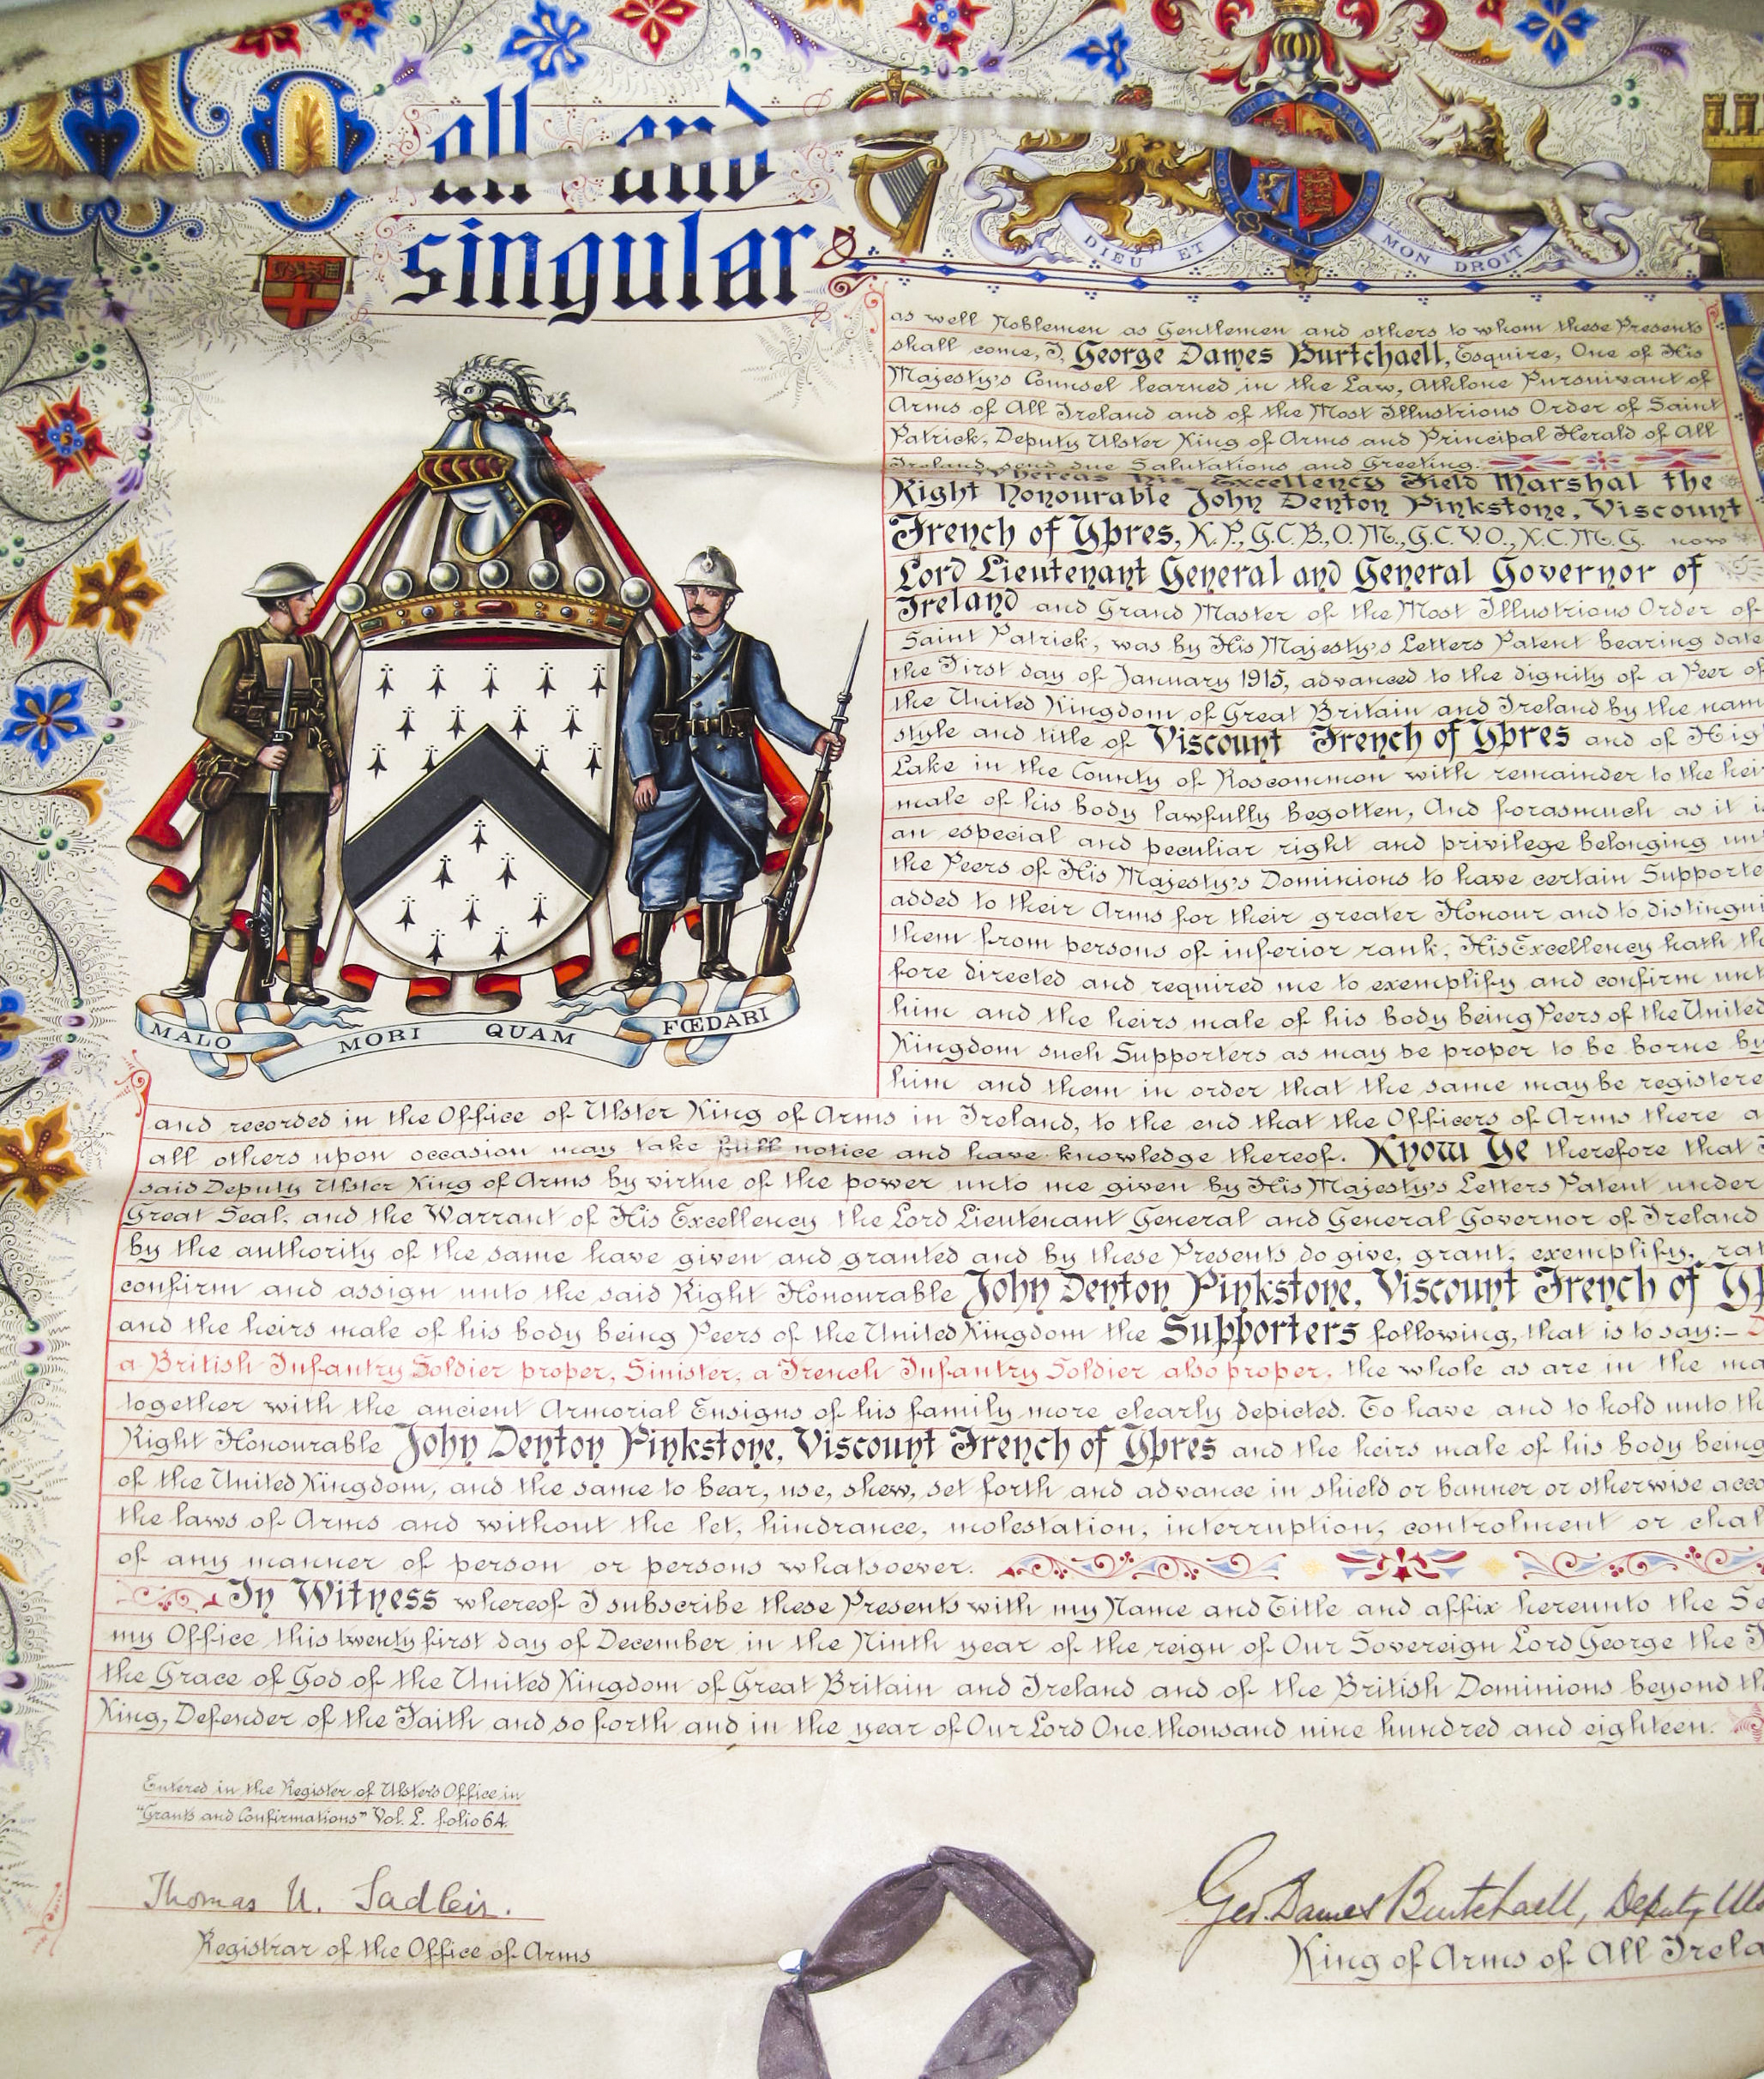 To all and
singular
DIEU ET MON DROIT
as well Noblemen as Gentlemen and others to whom these Presents
shall come, I, George Dames Burtchaell, Esquire, One of His
Majesty's Counsel learned in the Law, Athlone Pursuivant of
Arms of All Ireland and of the Most Illustrious Order of Saint
Patrick, Deputy Ulster King of Arms and Principal Herald of All
Ireland send due Salutations and Greeting.
Whereas His Excellency Field Marshal the
Right Honourable John Denton Pinkstone, Viscount
French of Ypres, K.P., G.C.B., O.M., G.C.V.O., K.C.M.G. now
Lord Lieutenant General and General Governor of
Ireland and Grand Master of the Most Illustrious Order of
Saint Patrick, was by His Majesty's Letters Patent bearing date
the First day of January 1915, advanced to the dignity of a Peer of
the United Kingdom of Great Britain and Ireland by the nam
style and title of Viscount French of Ypres and of Hig
Lake in the County of Roscommon with remainder to the heir
male of his body lawfully begotten, And forasmuch as it i
an especial and peculiar right and privilege belonging un
the Peers of His Majesty's Dominions to have certain Supporte
added to their Arms for their greater Honour and to distingui
them from persons of inferior rank, His Excellency hath th
fore directed and required me to exemplify and confirm unt
him and the heirs male of his body being Peers of the United
Kingdom such Supporters as may be proper to be borne by
him and them in order that the same may be registere
MALO MORI QUAM FŒDARI
and recorded in the Office of Ulster King of Arms in Ireland, to the end that the Officers of Arms there a
all others upon occasion may take full notice and have knowledge thereof. Know Ye therefore that I
said Deputy Ulster King of Arms by virtue of the power unto me given by His Majesty's Letters Patent under
Great Seal, and the Warrant of His Excellency the Lord Lieutenant General and General Governor of Ireland
by the authority of the same have given and granted and by these Presents do give, grant, exemplify, rat
confirm and assign unto the said Right Honourable John Denton Pinkstone, Viscount French of Yp
and the heirs male of his body being Peers of the United Kingdom the Supporters following, that is to say:- D
a British Infantry Soldier proper, Sinister, a French Infantry Soldier also proper, the whole as are in the ma
together with the ancient Armorial Ensigns of his family more clearly depicted. To have and to hold unto th
Right Honourable John Denton Pinkstone, Viscount French of Ypres and the heirs male of his body being
of the United Kingdom, and the same to bear, use, shew, set forth and advance in shield or banner or otherwise acco
the laws of Arms and without the let, hindrance, molestation, interruption, controlment or chal
of any manner of person or persons whatsoever.
In Witness whereof I subscribe these Presents with my Name and Title and affix hereunto the Se
my Office this twenty first day of December in the Ninth year of the reign of Our Sovereign Lord George the F
the Grace of God of the United Kingdom of Great Britain and Ireland and of the British Dominions beyond th
King, Defender of the Faith and so forth and in the year of Our Lord One thousand nine hundred and eighteen.
Entered in the Register of Ulster's Office in
"Grants and Confirmations" Vol. L. folio 64.
Thomas U. Sadleir.
Registrar of the Office of Arms
Geo. Dames Burtchaell, Deputy Uls
King of Arms of All Irela